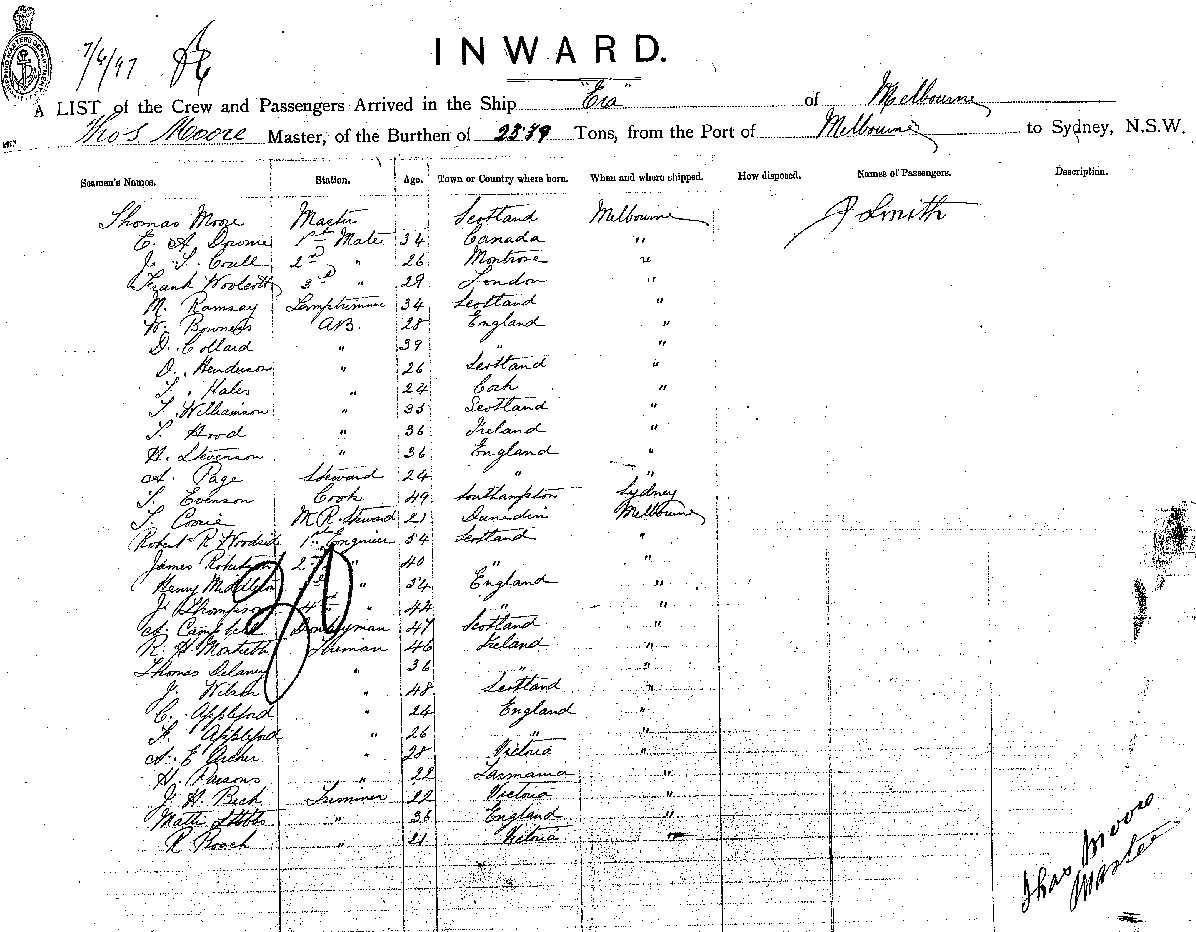 7/6/97
INWARD.
A LIST of the Crew and Passengers Arrived in the Ship "Era" of Melbourne
Thos Moore Master, of the Burthen of 2379 Tons, from the Port of Melbourne to Sydney, N.S.W.
Seamen's Names. Station. Age. Town or Country where born. When and where shipped. How disposed. Names of Passengers. Description.
Thomas Moore Master Scotland Melbourne J Smith
E. A. Downie 1st Mate 34 Canada "
J. S. Coull 2nd " 26 Montrose "
Frank Woolcott 3rd " 29 London "
M. Ramsey Lamptrimmer 34 Scotland "
W. Bowness A.B. 28 England "
D. Collard " 39 " "
D. Henderson " 26 Scotland "
T. Hales " 24 Cork "
T. Williamson " 35 Scotland "
T. Hood " 36 Ireland "
H. Stevenson " 36 England "
A. Page Steward 24 " "
T. Evenson Cook 49 Southampton Sydney
T. Cowie M.R. Steward 21 Dunedin Melbourne
Robert R Woodside 1st Engineer 54 Scotland "
James Robertson 2nd " 40 " "
Henry Middleton " 32 England "
J. Thompson 4th " 44 " "
A. Campbell Donkeyman 47 Scotland "
R. H. Monteith Fireman 46 Ireland "
Thomas Delaney " 36 " "
J. Wilson " 48 Scotland "
C. Appleford " 24 England "
F. Appleford " 26 " "
A. E Archer " 28 Victoria "
H. Parsons " 22 Tasmania "
J. H. Beck Trimmer 22 Victoria "
Matt Stubbs " 36 England "
R Roach " 21 Victoria "
30
Thos Moore
Master